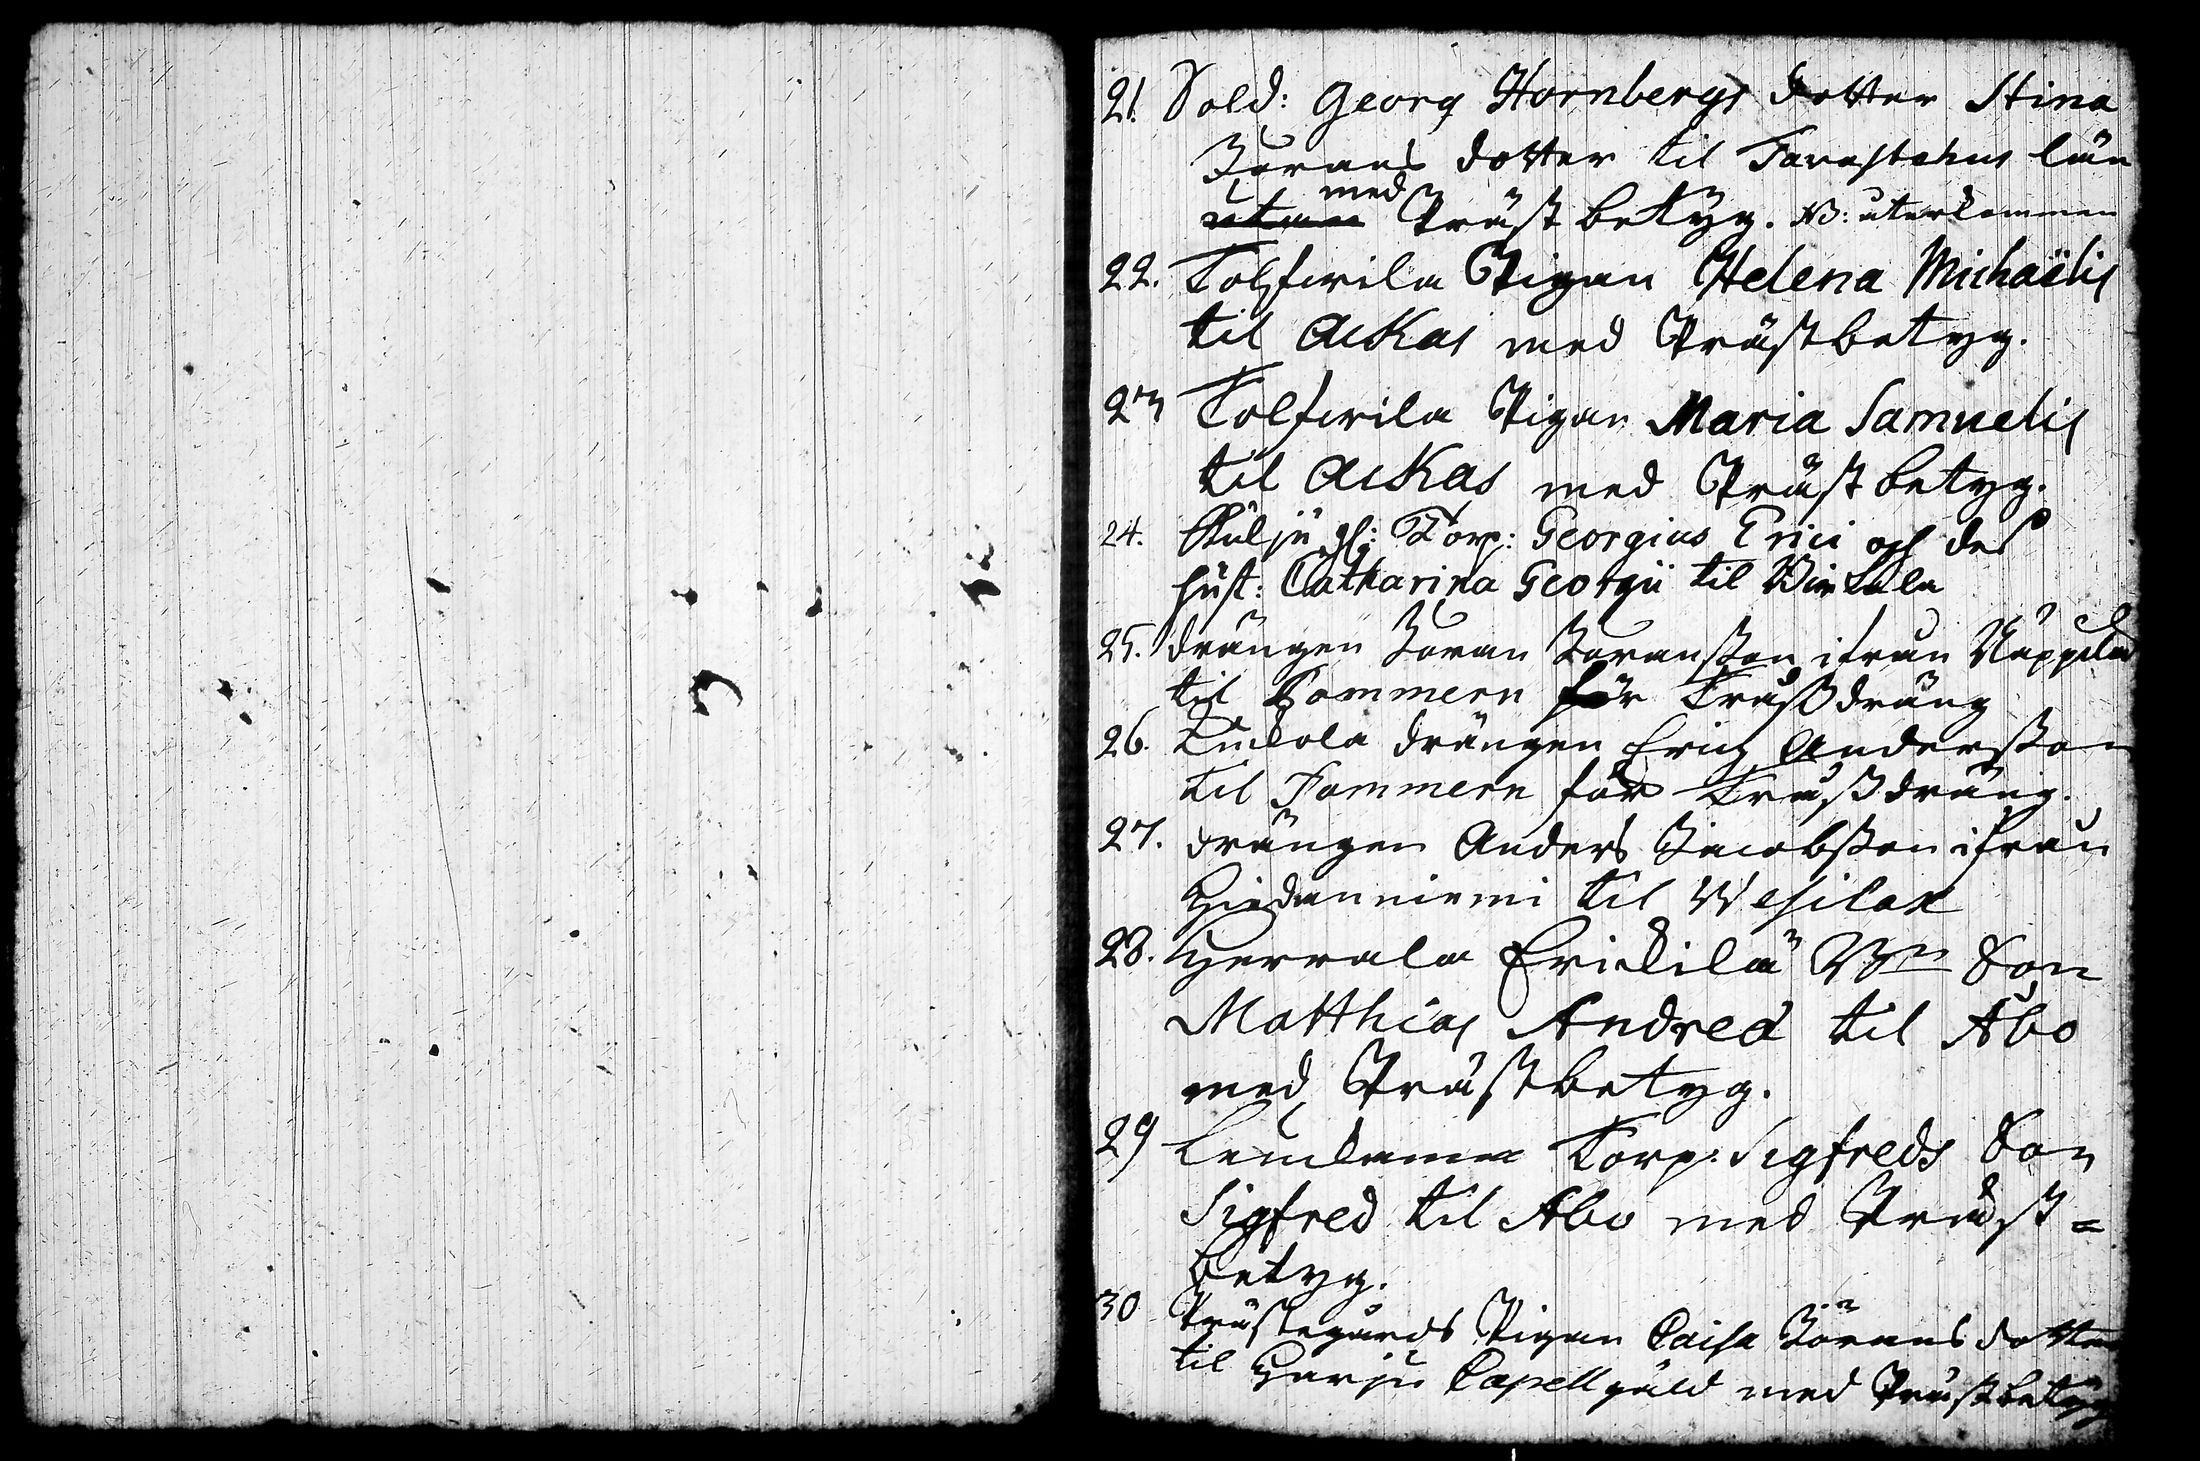 21. Sold: Georg Hornbergs dotter Stina
Jörans dotter til Tavastehus län
utan med Präst betÿg. NB: återkommen
22. Tolfwila Pigan Helena Michaëlis
til Ackas med Prästbetyg.
23 Tolfwila Pigan Maria Samuelis
til Ackas med Präst betyg.
24. Torp: Georgius Erici och des
hust: Catharina Georgii til Birkala
25. drängen Jöran Jöransson ifrån
til Pommern för Trossdräng
26. drängen Eric Andersson
til Pommern för Trossdräng.
27. drängen Anders Jacobsson ifrån
Hiedanniemi til Wesilax
28. Herrala Erickilä Bn Son
Matthias Andreæ til Åbo
med Prästbetyg.
29 Torp: Sigfreds Son
Sigfred til Åbo med Präst=
betyg.
30 Prästegårds Pigan Caisa Jörans dotter
til Harju Capell gäld med Prästbetÿg